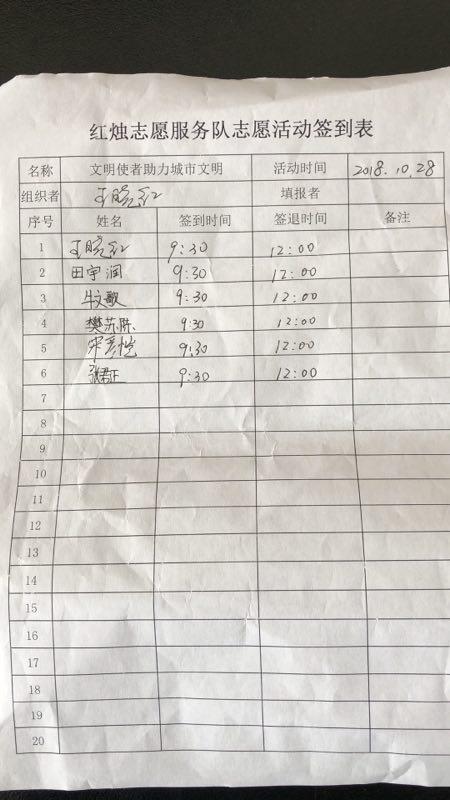 红烛志愿服务队志愿活动签到表
名称 文明使者助力城市文明 活动时间 2018.10.28
组织者 王晓红 填报者
序号 姓名 签到时间 签退时间 备注
1 王晓红 9:30 12:00
2 田宇润 9:30 12:00
3 牛文歌 9:30 12:00
4 樊苏陈 9:30 12:00
5 9:30 12:00
6 张君正 9:30 12:00
7
8
9
10
11
12
13
14
15
16
17
18
19
20